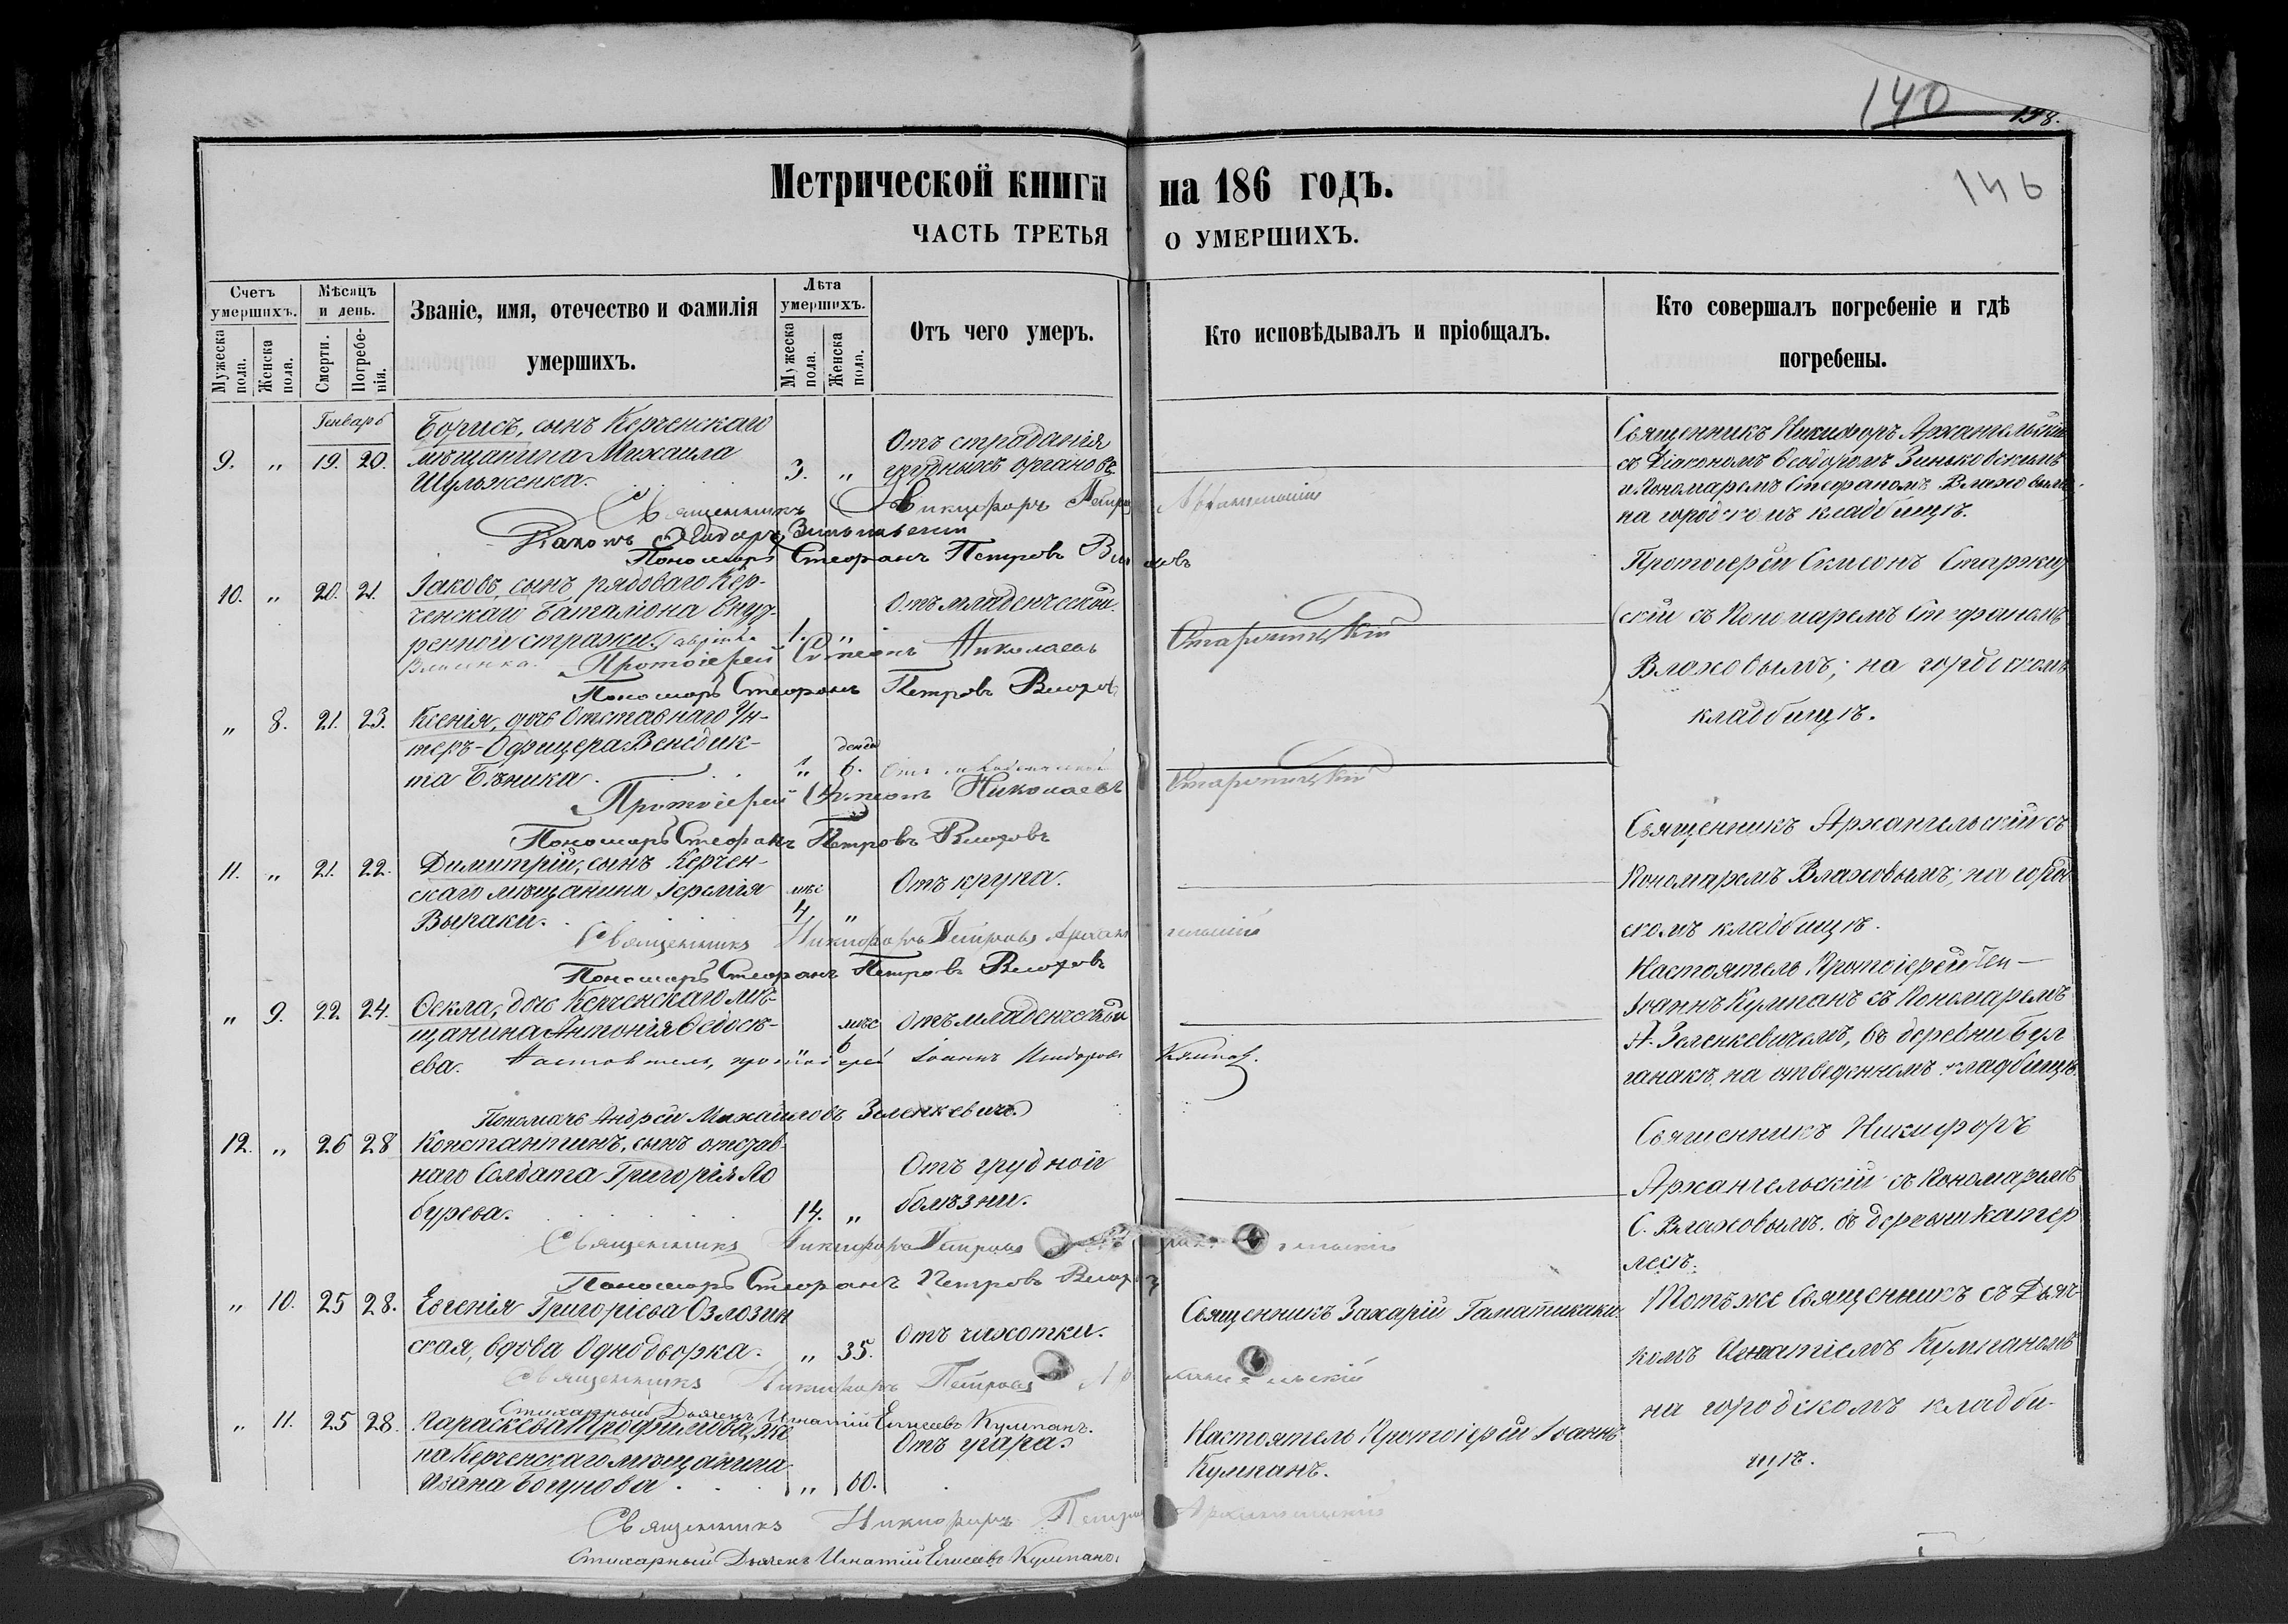 140
138.
146
Метрической книги на 186 годъ.
ЧАСТЬ ТРЕТЬЯ О УМЕРШИХЪ.
Счетъ умершихъ.
Мужеска пола.
Женска пола.
Мѣсяцъ и день.
Смерти.
Погребенія.
Званіе, имя, отечество и фамилія умершихъ.
Лѣта умершихъ.
Мужеска пола.
Женска пола.
Отъ чего умеръ.
Кто исповѣдывалъ и пріобщалъ.
Кто совершалъ погребеніе и гдѣ погребены.
Генварь
9. " 19. 20.
Борисъ, сынъ Керченскаго
мѣщанина Михаила
Шульженка.
3. "
Отъ страданія
грудныхъ органовъ.
Священникъ Никифоръ Архангельскій
съ Діакономъ Ѳеодоромъ Зиньковскимъ
и Пономаремъ Стефаномъ Влаховымъ
на городскомъ кладбищѣ.
Священникъ Никифоръ Петровъ Архангельскій
Пономарь Стефанъ Петровъ Влаховъ
10. " 20. 21.
Іаковъ, сынъ рядоваго Кер-
ченскаго Баталіона Внут-
ренной стражи
1. "
Отъ младенческой.
Протоіерей Симеонъ Николаевъ Старжицкій
Пономарь Стефанъ Петровъ Влаховъ
Протоіерей Симеонъ Старжиц
скій съ Пономаремъ Стефаномъ
Влаховымъ; на городскомъ
кладбищѣ.
" 8. 21. 23.
Ксенія, дочь Отставнаго Ун-
теръ-Офицера Венедик-
та Бѣника.
" дней 6.
Отъ младенческой
Протоіерей Симеонъ Николаевъ Старжицкій
Пономарь Стефанъ Петровъ Влаховъ
11. " 21. 22.
Димитрій, сынъ Керчен-
скаго мѣщанина Іеремія
Выраки.
мѣс 4 "
Отъ крупа.
Священникъ Архангельскій съ
Пономаремъ Влаховымъ; на город
скомъ кладбищѣ.
Священникъ Никифоръ Петровъ Архангельскій
Пономарь Стефанъ Петровъ Влаховъ
" 9. 22. 24.
Ѳекла, дочь Керченскаго мѣ-
щанина Антонія Ѳедосѣ-
ева.
" мѣс 6
Отъ младенческой
Настоятель Протоіерей
Іоаннъ Кумпанъ съ Пономаремъ
А. Зеленкевичемъ, въ деревни Бул
ганакѣ, на отведенномъ кладбищѣ
Настоятель, протоіерей Іоаннъ Кумпан.
Пономарь Андрей Михайловъ Зеленкевичъ
12. " 26 28
Константинъ, сынъ отстав-
наго Солдата Григорія Ло
бурева.
14. "
Отъ грудной
болѣзни.
Священникъ Никифоръ
Архангельскій съ Пономаремъ
С. Влаховымъ. въ деревни Катер
лесѣ.
Священникъ Никифоръ Петровъ Архангельскій
Пономарь Стефанъ Петровъ Влаховъ
" 10. 25 28.
Евгенія Григоріева Озлозин
ская, вдова Однодворка.
" 35.
Отъ чахотки.
Священникъ Захарій Гаматикаки.
Тотъ же Священникъ съ Дьяч-
комъ Игнатіемъ Кумпаномъ
на городскомъ кладби-
щѣ.
Священникъ Никифоръ Петровъ Архангельскій
Стихарный Дьячекъ Игнатій Елисеевъ Кумпанъ.
" 11. 25 28.
Параскева Трофимова, же
на Керченскаго мѣщанина
Ивана Богунова
" 60.
Отъ угара.
Настоятель Протоіерей Іоаннъ
Кумпанъ.
Священникъ Никифоръ Петровъ Архангельскій
Стихарный Дьячекъ Игнатій Елисеевъ Кумпанъ.